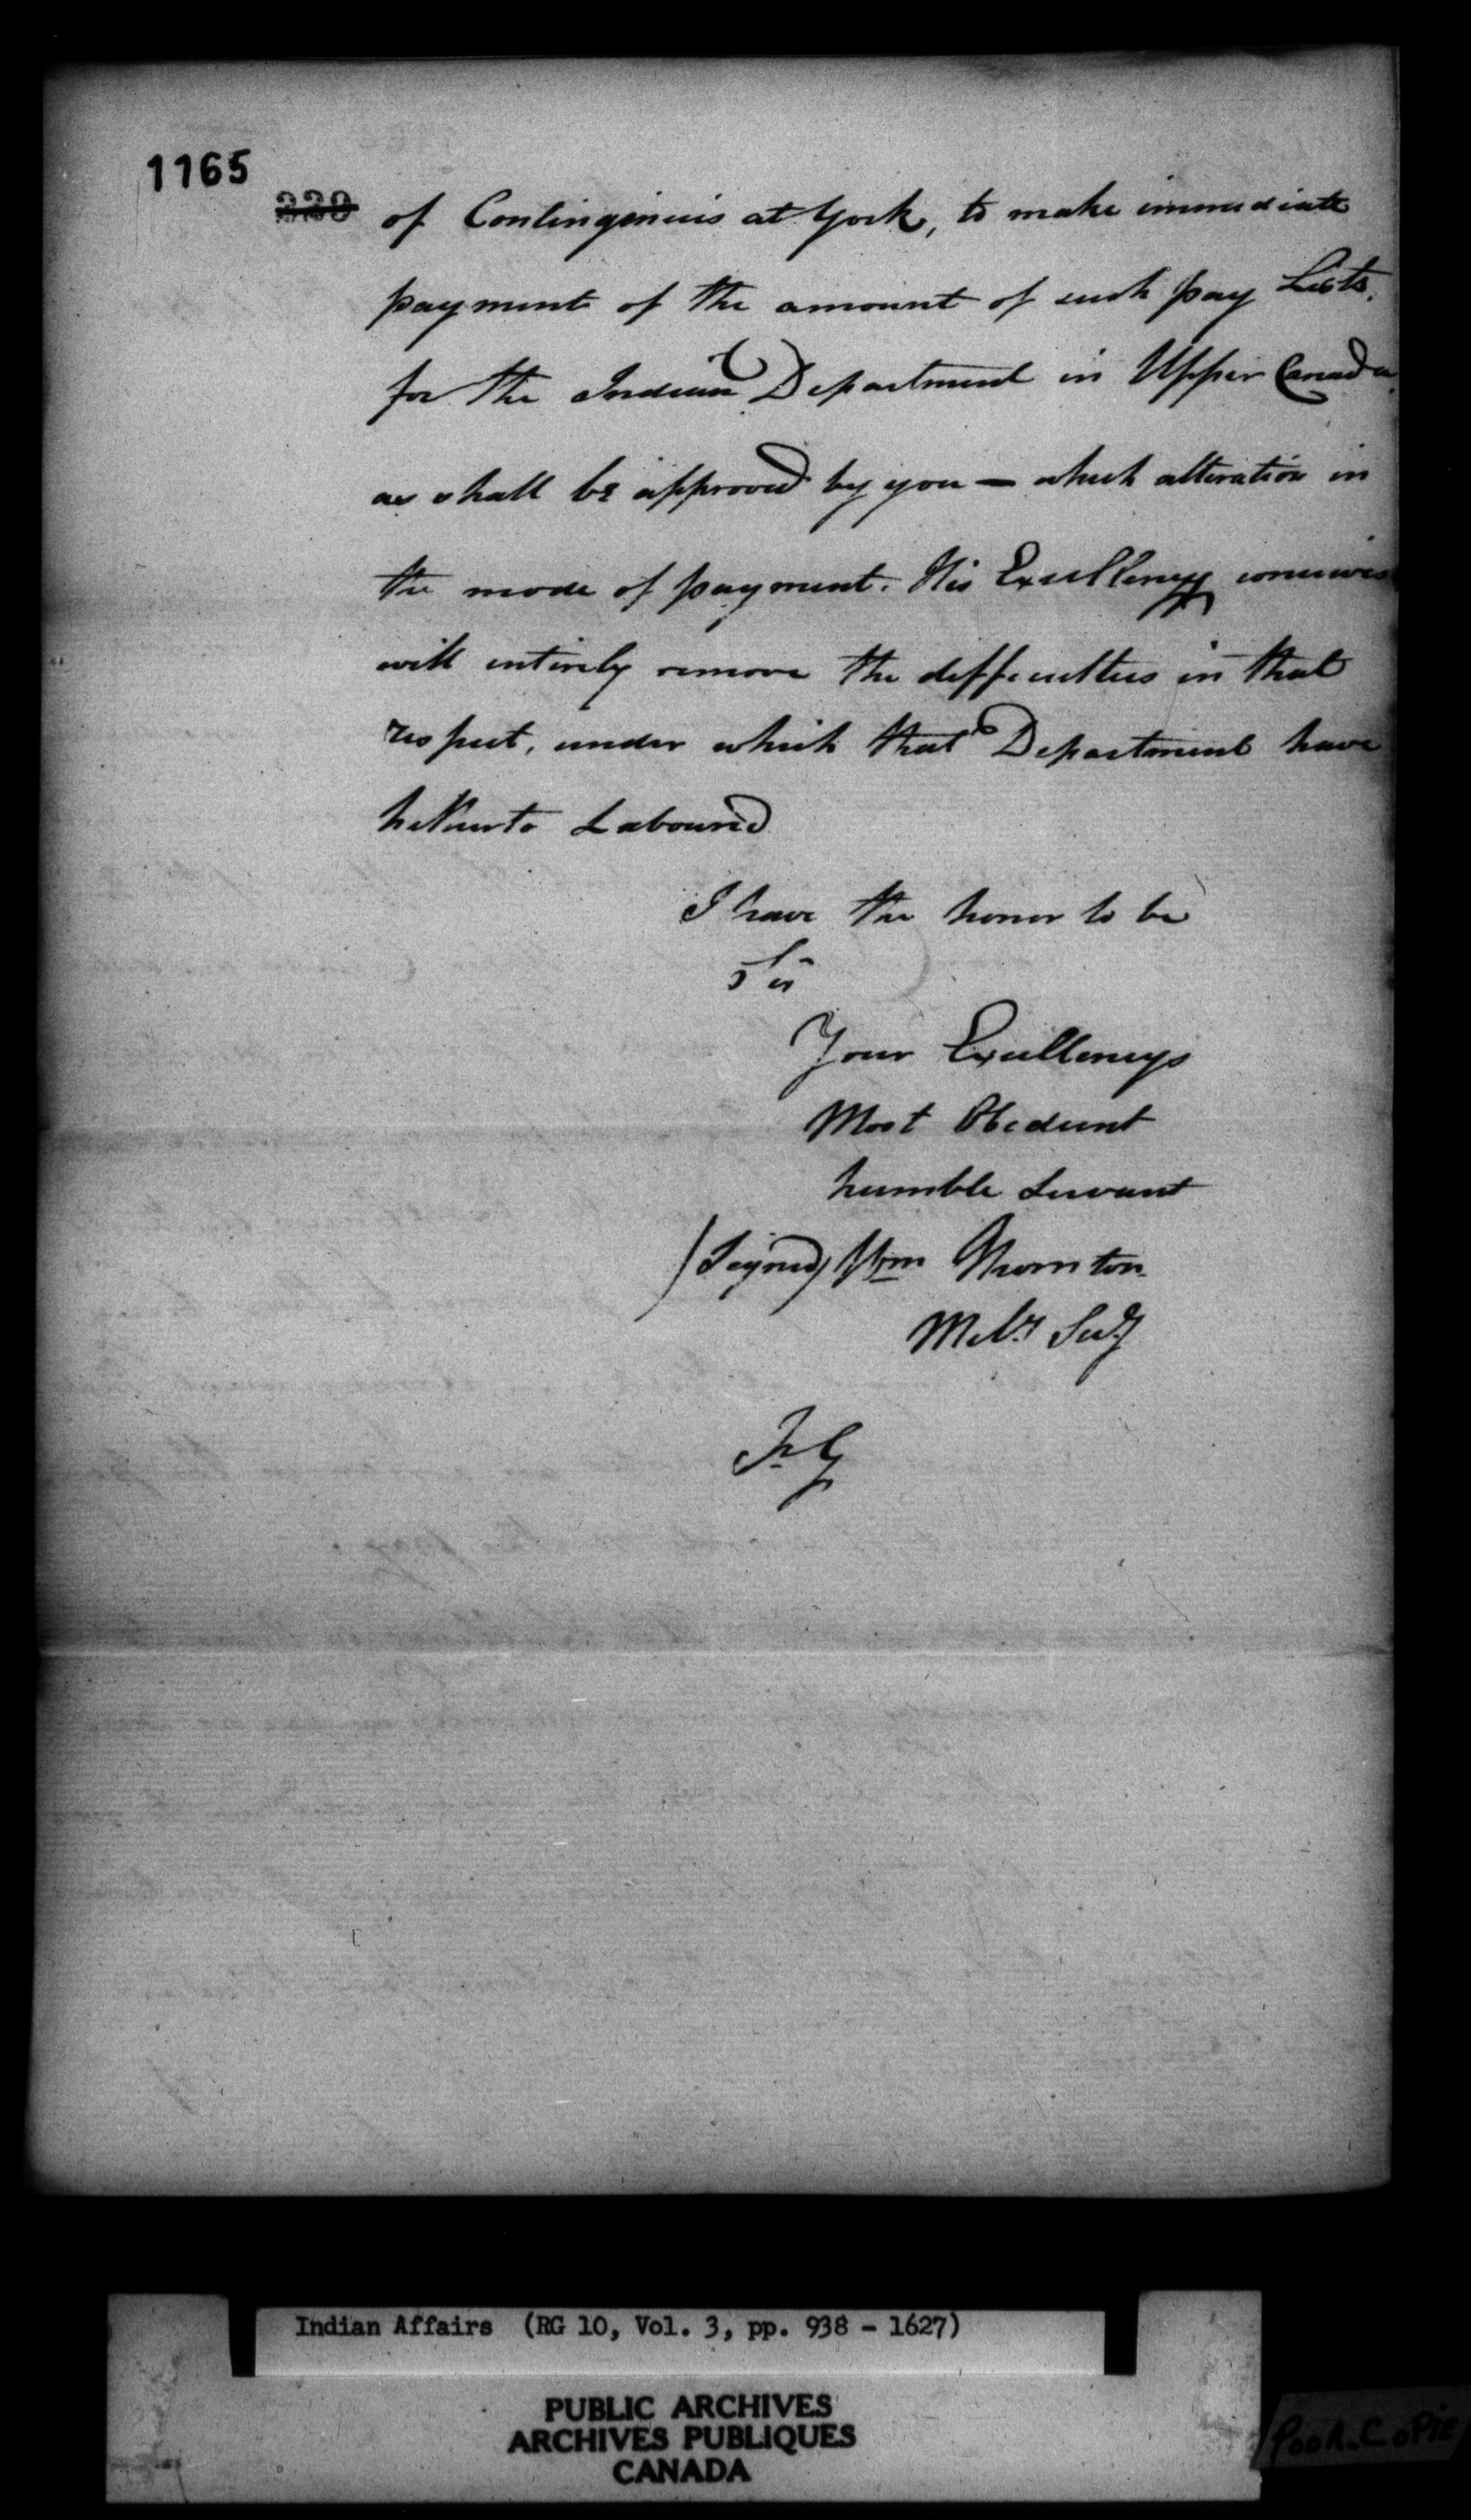 1165
339
of Contingencies at York, to make immediate
payment of the amount of such pay Lists.
for the Indian Department in Upper Canada
as shall be approved by you — which alteration in
the mode of payment. His Excellency conceives
will entirely remove the difficulties in that
respect, under which that Department have
hitherto Laboured
I have the honor to be
Sir
Your Excellencys
Most Obedient
humble Servant
(Signed) Wm Thornton
Mily Secy
Indian Affairs (RG 10, Vol. 3, pp. 938 - 1627)
PUBLIC ARCHIVES
ARCHIVES PUBLIQUES
CANADA
POOR COPIE